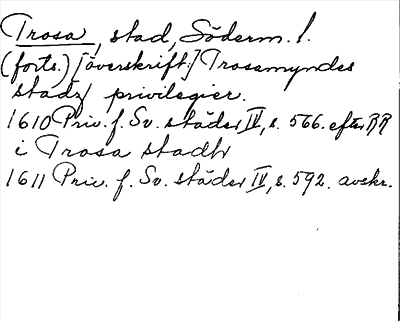 Trosa, stad, Söderm. l.
(forts.) [överskrift:] Trosamyndes
stadz privilegier.
1610 Priv. f. Sv. städer IV, s. 566. efter RR
i Trosa stadh
1611 Priv. f. Sv. städer IV, s. 592. avskr.